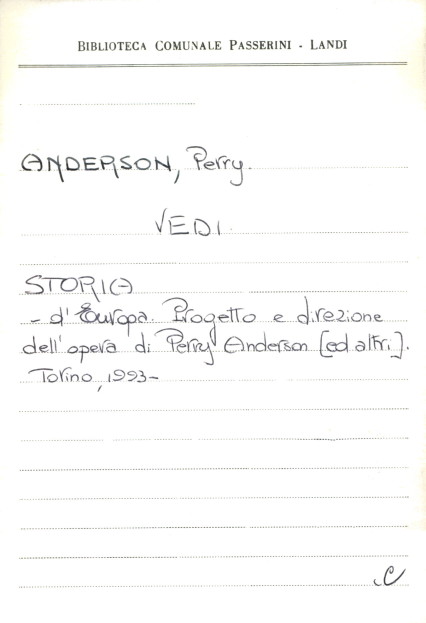 BIBLIOTECA COMUNALE PASSERINI - LANDI
ANDERSON, Perry.
VEDI
STORIA
- d'Europa. Progetto e direzione
dell'opera di Perry Anderson [ed altri].
Torino, 1993-
C